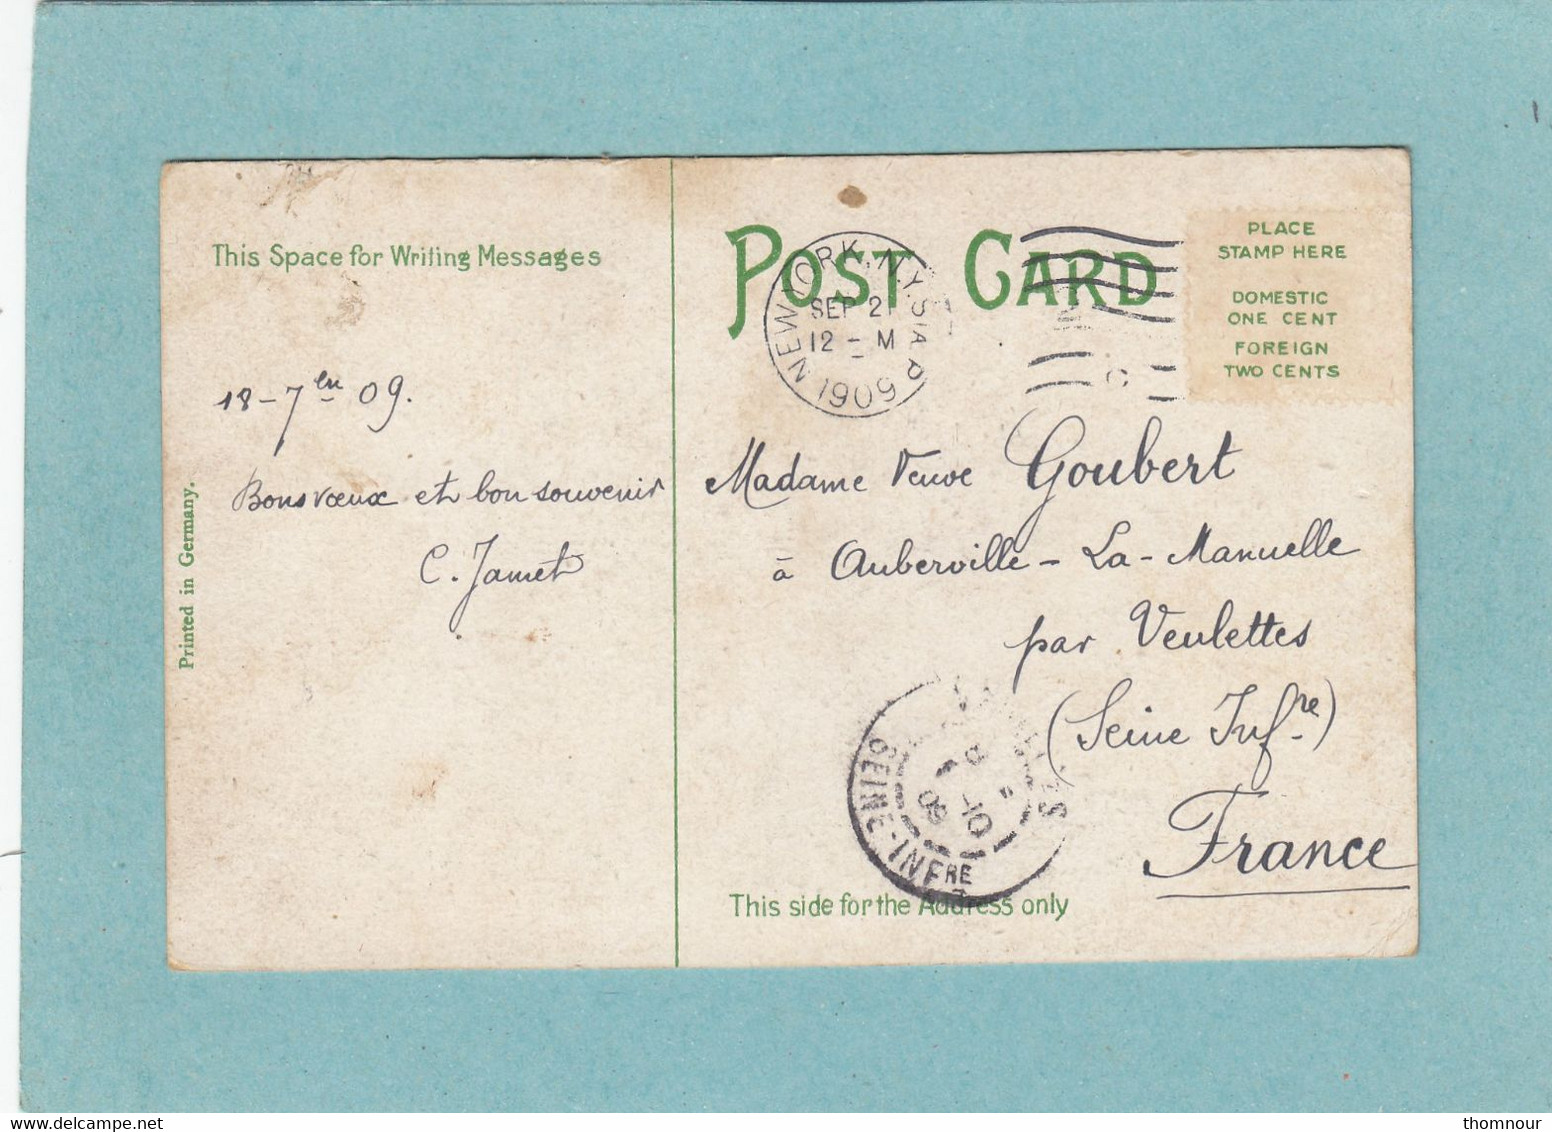 This Space for Writing Messages
18-7bre 09.
Bons vœux et bon souvenir
C. Jamet
Printed in Germany.
POST CARD
NEW YORK, N.Y. STA P
SEP 21
12 - M
1909
PLACE
STAMP HERE
DOMESTIC
ONE CENT
FOREIGN
TWO CENTS
Madame Veuve Goubert
à Auberville-La-Manuelle
par Veulettes
(Seine Infre)
France
SEINE-INFRE
10
09
This side for the Address only
thomnour